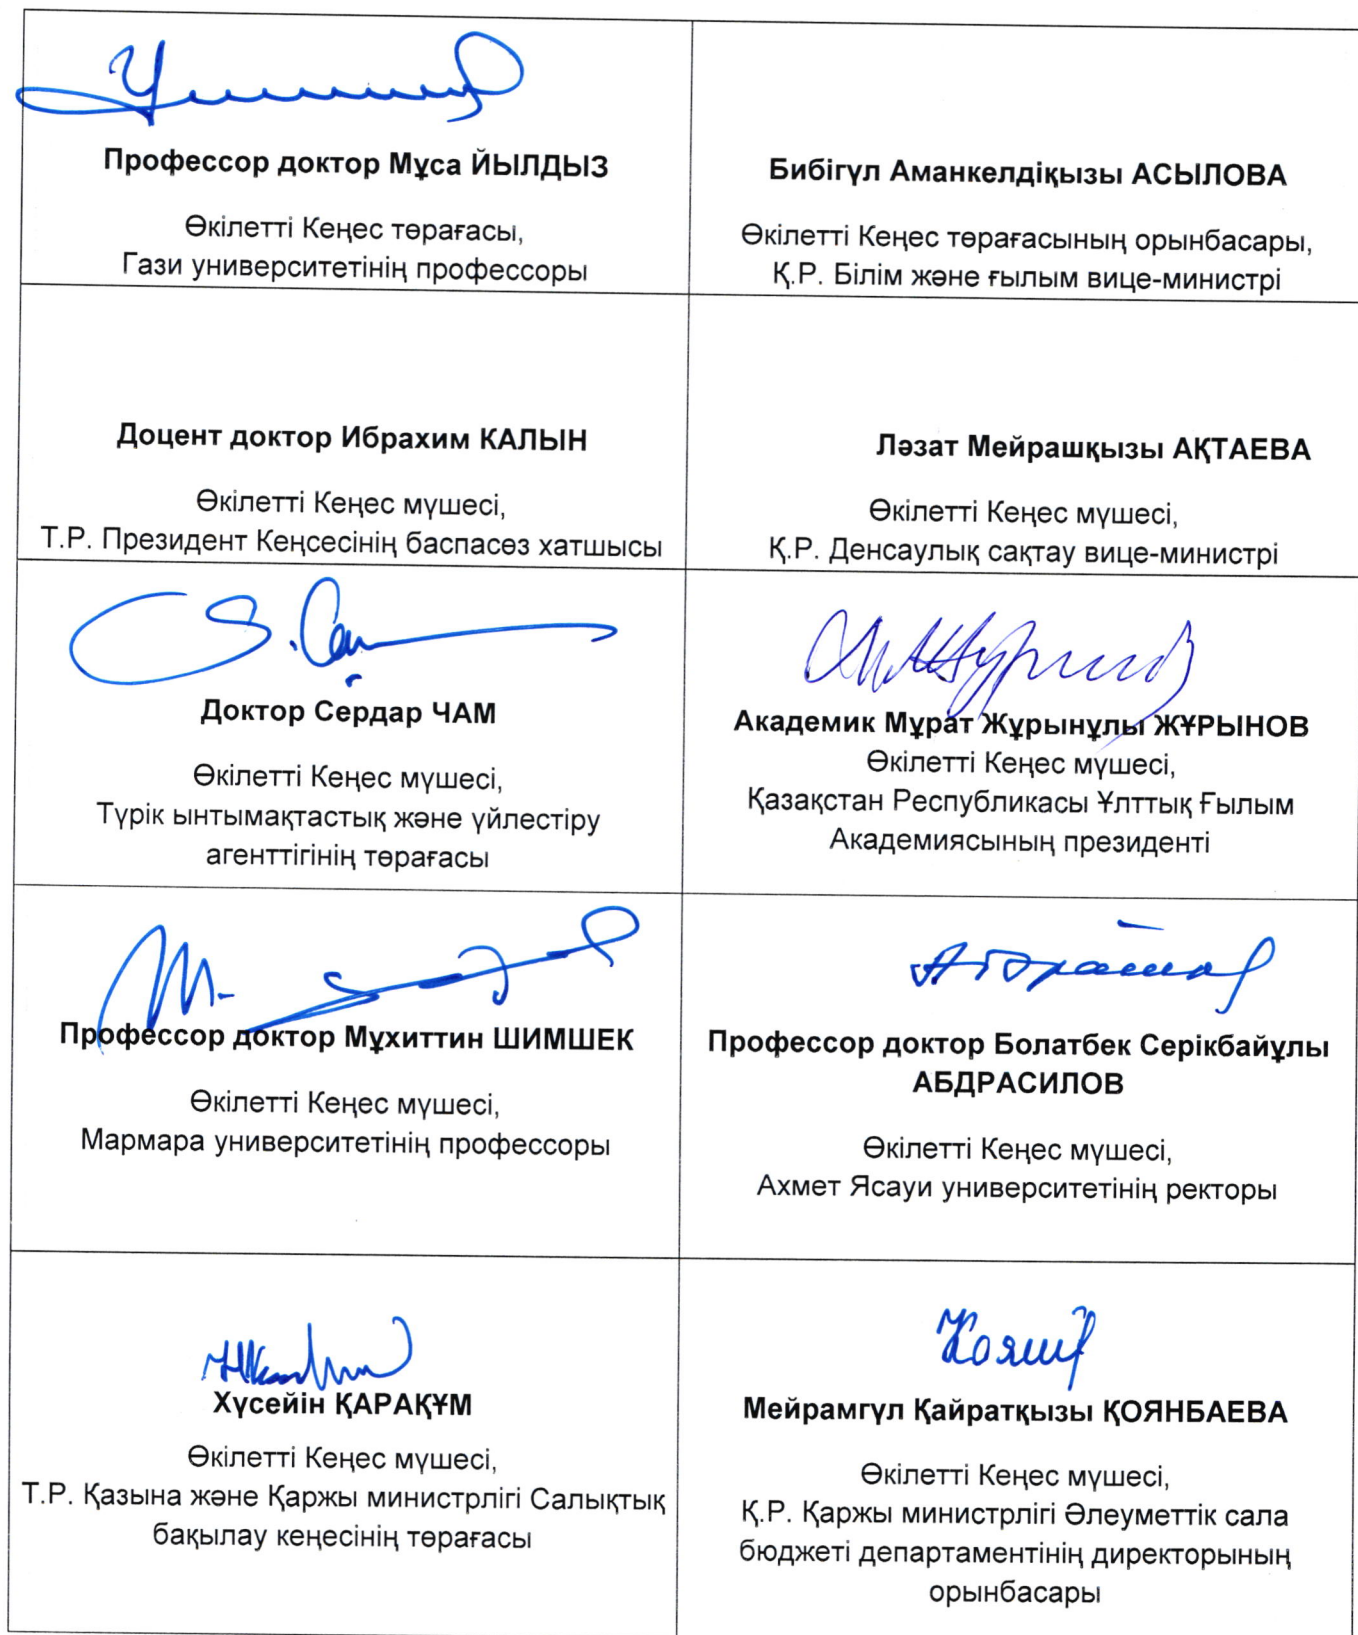 Профессор доктор Мұса ЙЫЛДЫЗ
Өкілетті Кеңес төрағасы,
Гази университетінің профессоры
Бибігүл Аманкелдіқызы АСЫЛОВА
Өкілетті Кеңес төрағасының орынбасары,
Қ.Р. Білім және ғылым вице-министрі
Доцент доктор Ибрахим КАЛЫН
Өкілетті Кеңес мүшесі,
Т.Р. Президент Кеңсесінің баспасөз хатшысы
Ләзат Мейрашқызы АҚТАЕВА
Өкілетті Кеңес мүшесі,
Қ.Р. Денсаулық сақтау вице-министрі
Доктор Сердар ЧАМ
Өкілетті Кеңес мүшесі,
Түрік ынтымақтастық және үйлестіру
агенттігінің төрағасы
Академик Мұрат Жұрынұлы ЖҰРЫНОВ
Өкілетті Кеңес мүшесі,
Қазақстан Республикасы Ұлттық Ғылым
Академиясының президенті
Профессор доктор Мұхиттин ШИМШЕК
Өкілетті Кеңес мүшесі,
Мармара университетінің профессоры
Профессор доктор Болатбек Серікбайұлы
АБДРАСИЛОВ
Өкілетті Кеңес мүшесі,
Ахмет Ясауи университетінің ректоры
Хүсейін ҚАРАҚҰМ
Өкілетті Кеңес мүшесі,
Т.Р. Қазына және Қаржы министрлігі Салықтық
бақылау кеңесінің төрағасы
Мейрамгүл Қайратқызы ҚОЯНБАЕВА
Өкілетті Кеңес мүшесі,
Қ.Р. Қаржы министрлігі Әлеуметтік сала
бюджеті департаментінің директорының
орынбасары